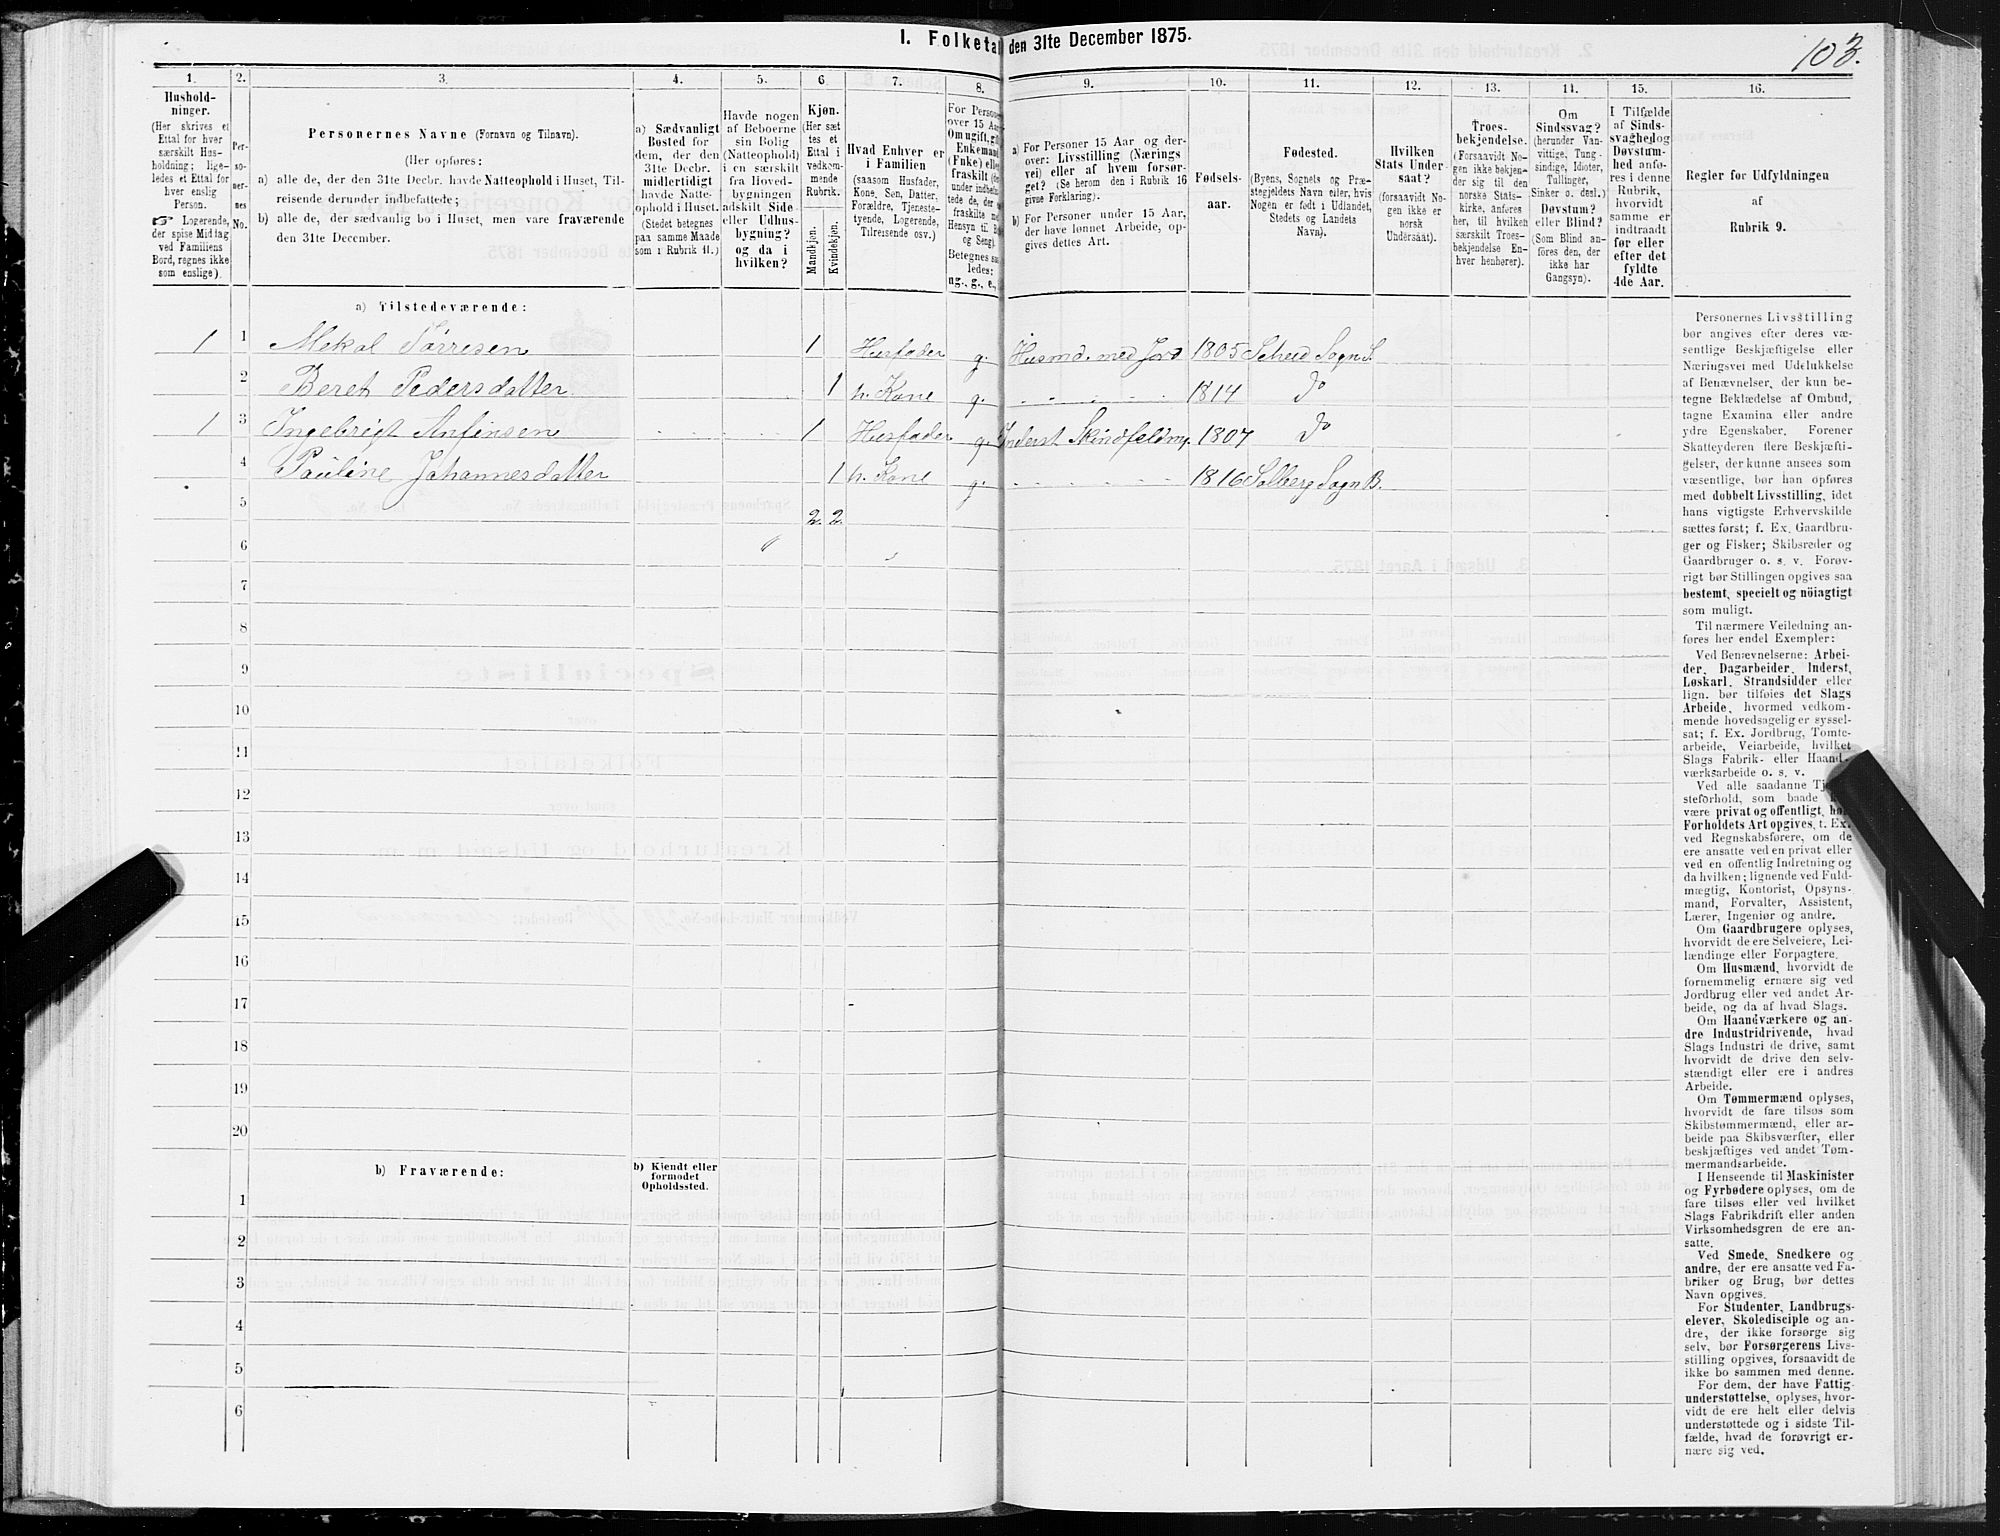 I. Folketal den 31te December 1875.
103.
1.
Hushold-
ninger.
(Her skrives et
Ettal for hver
særskilt Hus-
holdning; lige-
ledes et Ettal for
hver enslig
Person.
☞ Logerende,
der spise Middag
ved Familiens
Bord, regnes ikke
som enslige).
2.
Per-
so-
ner-
nes
No.
3.
Personernes Navne (Fornavn og Tilnavn).
(Her opføres:
a) alle de, der den 31te Decbr. havde Natteophold i Huset, Til-
reisende derunder indbefattede;
b) alle de, der sædvanlig bo i Huset, men vare fraværende
den 31te December.
4.
a) Sædvanligt
Bosted for
dem, der den
31te Decbr.
midlertidigt
havde Natte-
ophold i Huset.
(Stedet betegnes
paa samme Maade
som i Rubrik 11.)
5.
Havde nogen
af Beboerne
sin Bolig
(Natteophold)
i en særskilt
fra Hoved-
bygningen
adskilt Side-
eller Udhus-
bygning?
og da i
hvilken?
6.
Kjøn.
(Her sæt-
tes et
Ettal i
vedkom-
mende
Rubrik.
Mandkjøn.
Kvindekjøn.
7.
Hvad Enhver er
i Familien
(saasom Husfader,
Kone, Søn, Datter,
Forældre, Tjeneste-
tyende, Logerende,
Tilreisende osv.)
8.
For Persone
over 15 Aa
Om ugift, gif
Enkemand
(Enke) elle
fraskilt
Betegnes saa
ledes:
ug., g., e.,
9.
a) For Personer 15 Aar og der-
over: Livsstilling (Nærings
vei) eller af hvem forsør-
get? (Se herom den i Rubrik 16
givne Forklaring).
b) For Personer under 15 Aar,
der have lønnet Arbeide, op-
gives dettes Art.
10.
Fødsels-
aar.
11.
Fødested.
(Byens, Sognets og Præ-
stegjeldets Navn eller, hvis
Nogen er født i Udlandet,
Stedets og Landets
Navn).
12.
Hvilken
Stats Under-
saat?
(forsaavidt No-
gen ikke er
norsk
Undersaat).
13.
Troes-
bekjendelse.
(Forsaavidt No-
gen ikke bekjen-
der sig til den
norske Stats-
kirke, anføres
her, til hvilken
særskilt Troes-
bekjendelse En-
hver henhører).
14.
Om
Sindssvag?
(herunder Van-
vittige, Tung-
sindige, Idioter,
Tullinger,
Sinker o. desl.)
Døvstum?
eller Blind?
(Som Blind an-
føres den, der
ikke har
Gangsyn).
15.
I Tilfælde
af Sinds-
svaghed og
Døvstum-
hed anfø-
res i denne
Rubrik,
hvorvidt
samme er
indtraadt
før eller
efter det
fyldte
4de Aar.
16.
Regler for Udfyldningen
af
Rubrik 9.
a) Tilstedeværende:
1 1 Mekal Tørresen 1 Husfader g. Husmd. med Jord 1805 Scheid Sogn S.
2 Beret Pedersdatter 1 h. Kone g. 1814 Do
1 3 Ingebrigt Anfinsen 1 Husfader g. Inderst Skindfeldmr. 1807 Do
4 Pauline Johannesdatter 1 h. Kone g. 1816 Solberg Sogn B.
5 2. 2.
6
7
8
9
10
11
12
13
14
15
16
17
18
19
20
b) Fraværende:
b) Kjendt eller
formodet
Opholdssted.
1
2
3
4
5
6
Personernes Livsstilling
bør angives efter deres væ-
sentlige Beskjæftigelse eller
Næringsvei med Udelukkelse
af Benævnelser, der kun be-
tegne Beklædelse af Ombud,
tagne Examina eller andre
ydre Egenskaber. Forener
Skatteyderen flere Beskjæfti-
gelser, der kunne ansees som
væsentlige, bør han opføres
med dobbelt Livsstilling, idet
hans vigtigste Erhvervskilde
sættes først; f. Ex. Gaardbru-
ger og Fisker; Skibsreder og
Gaardbruger o. s. v. Forøv-
rigt bør Stillingen opgives saa
bestemt, specielt og nöiagtigt
som muligt.
Til nærmere Veiledning an-
føres her endel Exempler:
Ved Benævnelserne: Arbei-
der, Dagarbeider, Inderst,
Løskarl, Strandsidder eller
lign. bør tilføies det Slags
Arbeide, hvormed vedkom-
mende hovedsagelig er syssel-
sat; f. Ex. Jordbrug, Tomte-
arbeide, Veiarbeide, hvilket
Slags Fabrik- eller Haand-
værksarbeide o. s. v.
Ved alle saadanne Tje
steforhold, som baade
være privat og offentligt, bør
Forholdets Art opgives, t. Ex.
ved Regnskabsførere, om de
ere ansatte ved en privat eller
ved en offentlig Indretning og
da hvilken; lignende ved Fuld-
mægtig, Kontorist, Opsyns-
mand, Forvalter, Assistent,
Lærer, Ingeniør og andre.
Om Gaardbrugere oplyses,
hvorvidt de ere Selveiere, Lei-
lændinge eller Forpagtere.
Om Husmænd, hvorvidt de
fornemmelig ernære sig ved
Jordbrug eller ved andet Ar-
beide, og da af hvad Slags.
Om Haandværkere og an-
dre Industridrivende, hvad
Slags Industri de drive, samt
hvorvidt de drive den selv-
stændigt eller ere i andres
Arbeide.
Om Tømmermænd oplyses,
hvorvidt de fare tilsøs som
Skibstømmermænd, eller ar-
beide paa Skibsværfter, eller
beskjæftiges ved andet Tøm-
mermandsarbeide.
I Henseende til Maskinister
og Fyrbødere oplyses, om de
fare tilsøs eller ved hvilket
Slags Fabrikdrift eller anden
Virksomhedsgren de ere an-
satte.
Ved Smede, Snedkere og
andre, der ere ansatte ved Fa-
briker og Brug, bør dettes
Navn opgives.
For Studenter, Landbrugs-
elever, Skoledisciple og an-
dre, der ikke forsørge sig
selv, bør Forsørgerens Livs-
stilling opgives, forsaavidt de
ikke bo sammen med denne.
For dem, der have Fattig-
understøttelse, oplyses, hvor-
vidt de ere helt eller delvis
understøttede og i sidste Til-
fælde, hvad de forøvrigt er-
nære sig ved.